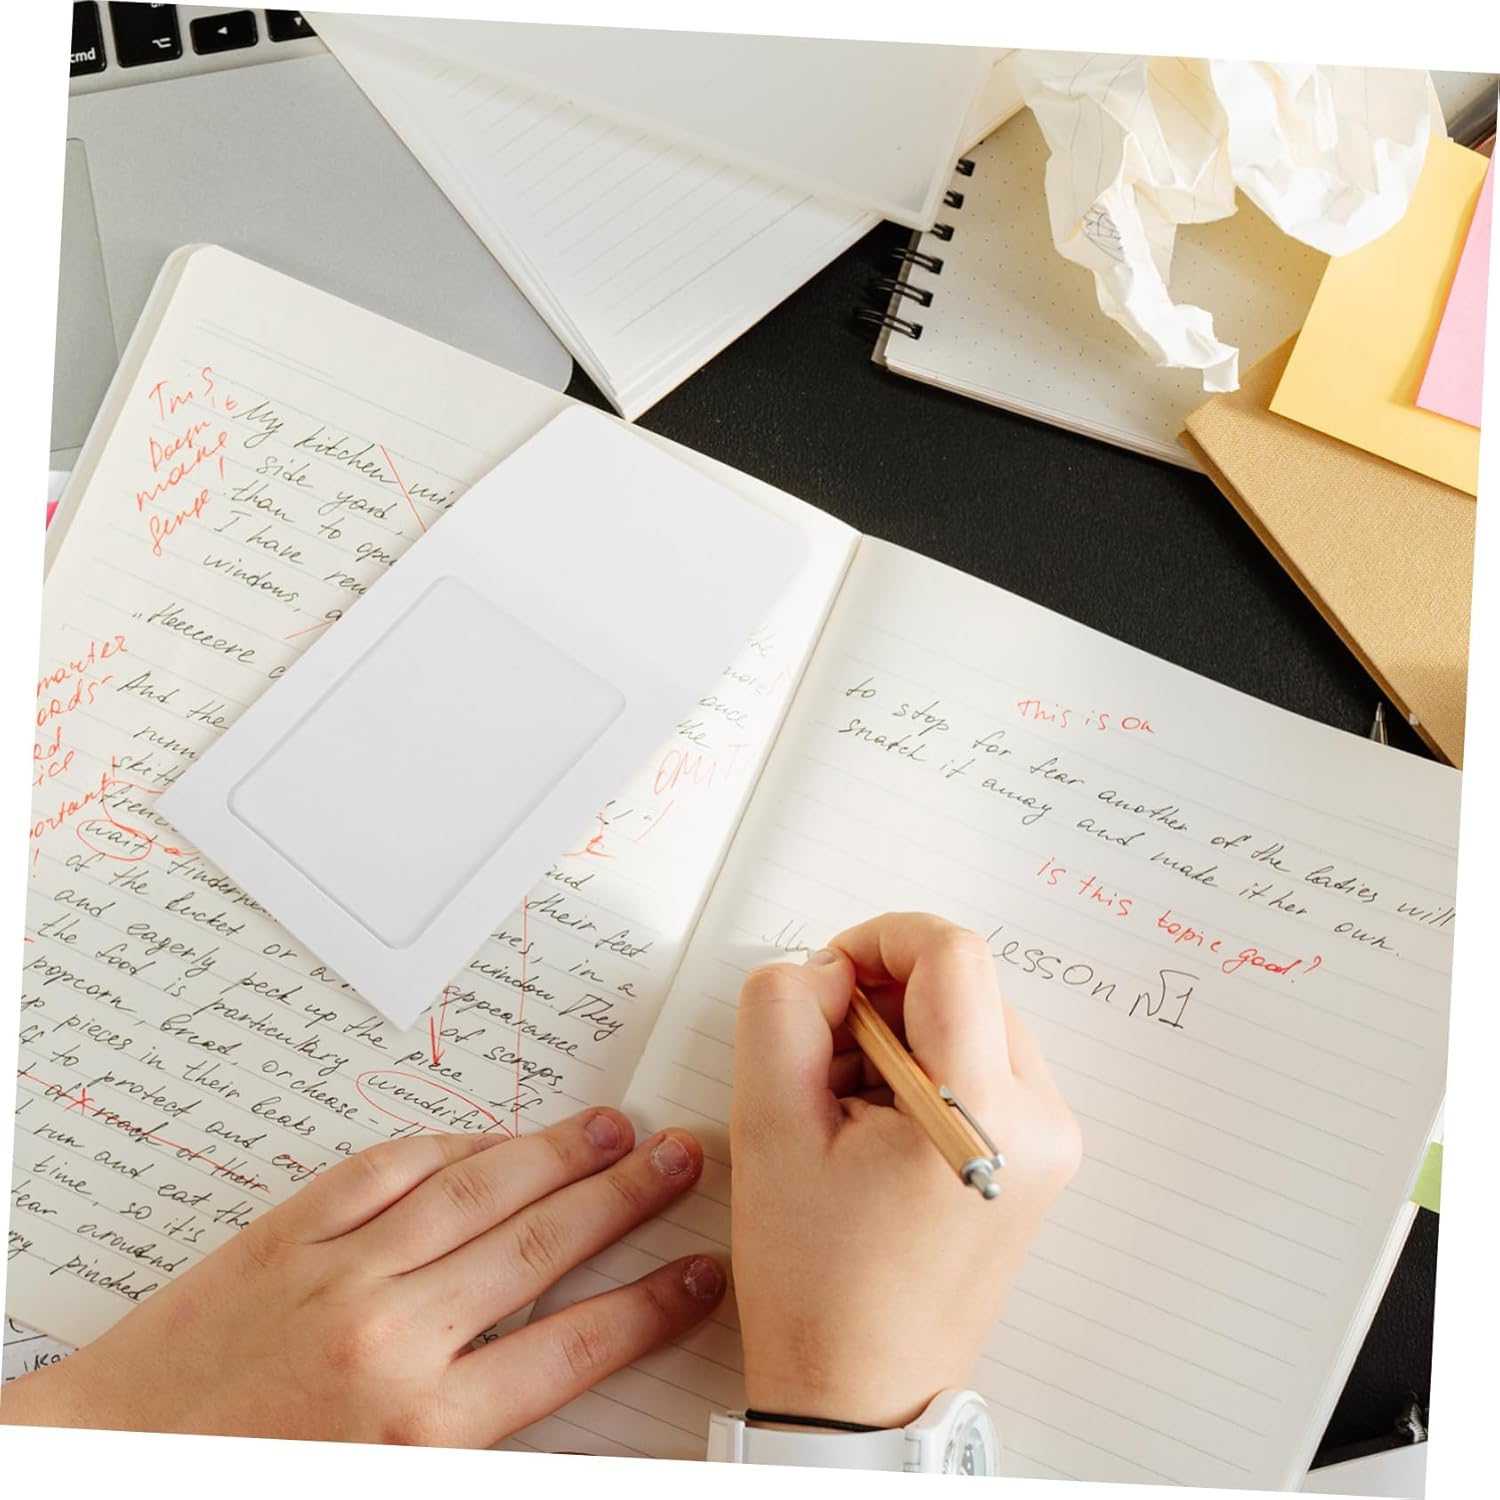 cmd
This
Doesn
make
sense!
My kitchen win
side yard,
than to ope
I have ren
windows, a
And the
runn
skitt
wait
of the bucket or a
and eagerly peck up the piece. If
the food is particulary wonderful
popcorn, bread, or cheese - th
pieces in their beaks a
to protect and enj
of reach of their
run and eat the
time, so it's
ear around
pinched
the
more
ance
the
OMIT
and
their feet
ves, in a
window. They
appearance
of scraps,
This is Ok
to stop for fear another of the ladies will
snatch it away and make it her own.
is this topic good?
Lesson №1